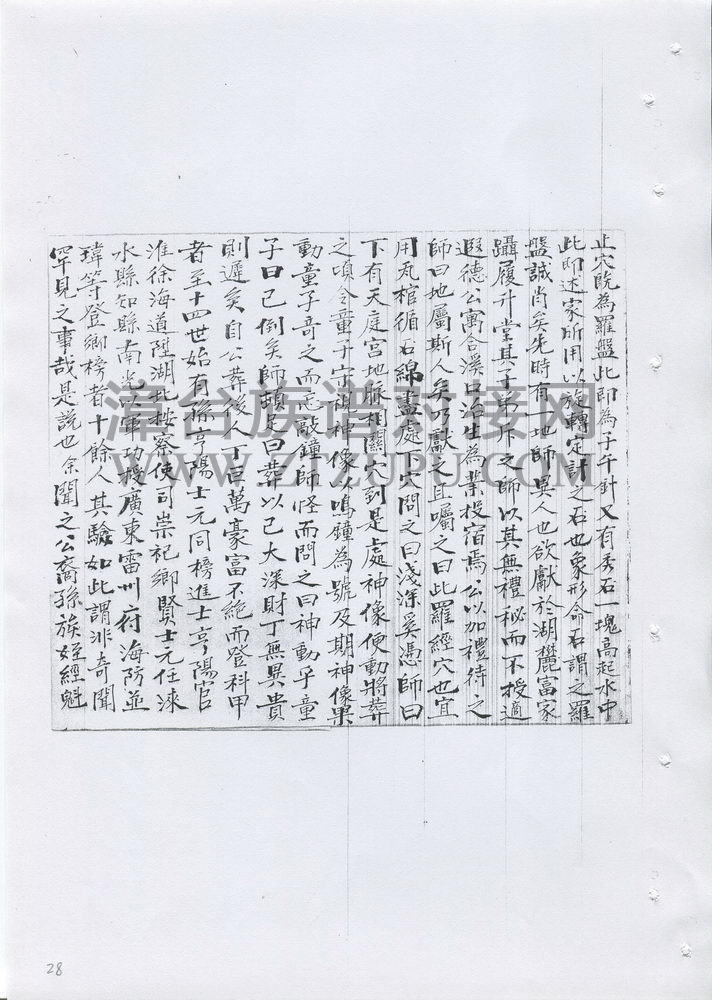 止穴既為羅盤此即為子午針又有秀石一塊高起水中
此即述家所用以旋轉定計之石也象形命石謂之羅
盤誠肖矣先時有一地師異人也欲獻於湖麓富家
躡履升堂其子弟斥之師以其無禮秘而不授適
遐德公寓合溪口治生為業投宿焉公以加禮待之
師曰地屬斯人矣乃獻之且囑之曰此羅經穴也宜
用瓦棺循石綿盡處下穴問之曰淺深奚憑師曰
下有天庭宮地脈相關穴到是處神像便動將葬
之頃令童子守湖神像以鳴鐘為號及期神像果
動童子奇之而忘敲鐘師怪而問之曰神動乎童
子曰已倒矣師頓足曰葬以已大深財丁無異貴
則遲矣自公葬後人丁百萬豪富不絕而登科甲
者至十四世始有孫亨陽士元同榜進士亨陽官
淮徐海道陞湖北按察使司崇祀鄉賢士元任淶
水縣知縣南光以軍功授廣東雷州府海防並
瑋等登鄉榜者十餘人其驗如此謂非奇聞
罕見之事哉是說也余聞之公裔孫族姪經魁
漳台族谱对接网
WWW.ZTZUPU.COM
28